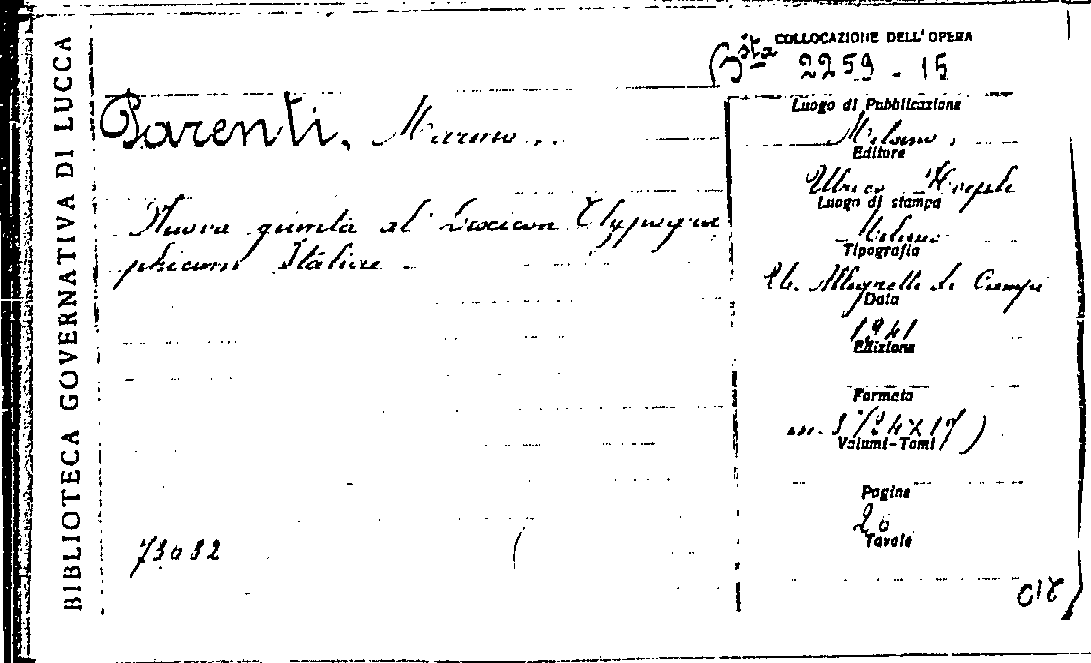 BIBLIOTECA GOVERNATIVA DI LUCCA
COLLOCAZIONE DELL'OPERA
Bsta 2259-15
Parenti, Marino..
Nuova giunta al Lexicon Typogra
phicum Italiae.
Luogo di Pubblicazione
Milano,
Editore
Ulrico Hoepli
Luogo di stampa
Milano
Tipografia
Allegretti di Campi
Data
1941
Edizione
Formato
in-8 (24x17)
Volumi-Tomi
Pagine
20
Tavole
73032